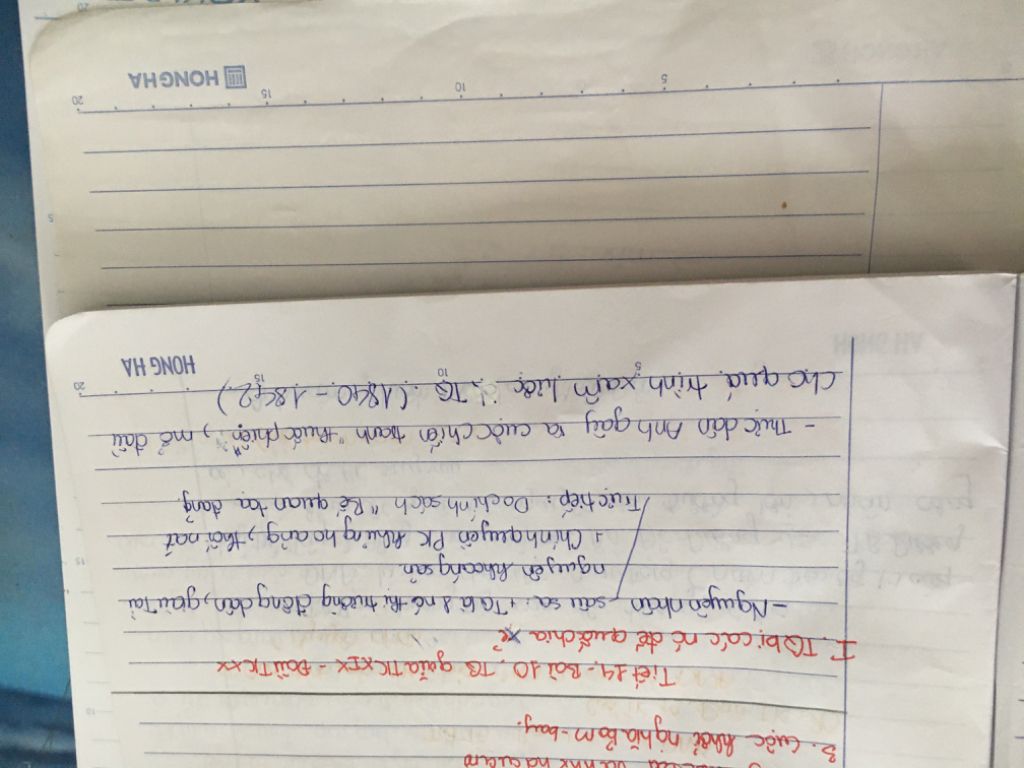 3. Cuộc khởi nghĩa Bom-bay.
Tiết 14 - Bài 10. TQ giữa TK XIX - Đầu TK XX
I. TQ bị các nc đế quốc chia xẻ
- Nguyên nhân sâu sa: + TQ là 1 nc thị trường đông dân, giàu tài
nguyên khoáng sản
+ Chính quyền PK khủng hoảng, thối nát
Trực tiếp: Do chính sách "Bế quan tỏa cảng
- Thực dân Anh gây ra cuộc chiến tranh "thuốc phiện", mở đầu
cho quá trình xâm lược TQ (1840 - 1842)
HONG HA
5 10 15 20
HONG HA
5 10 15 20